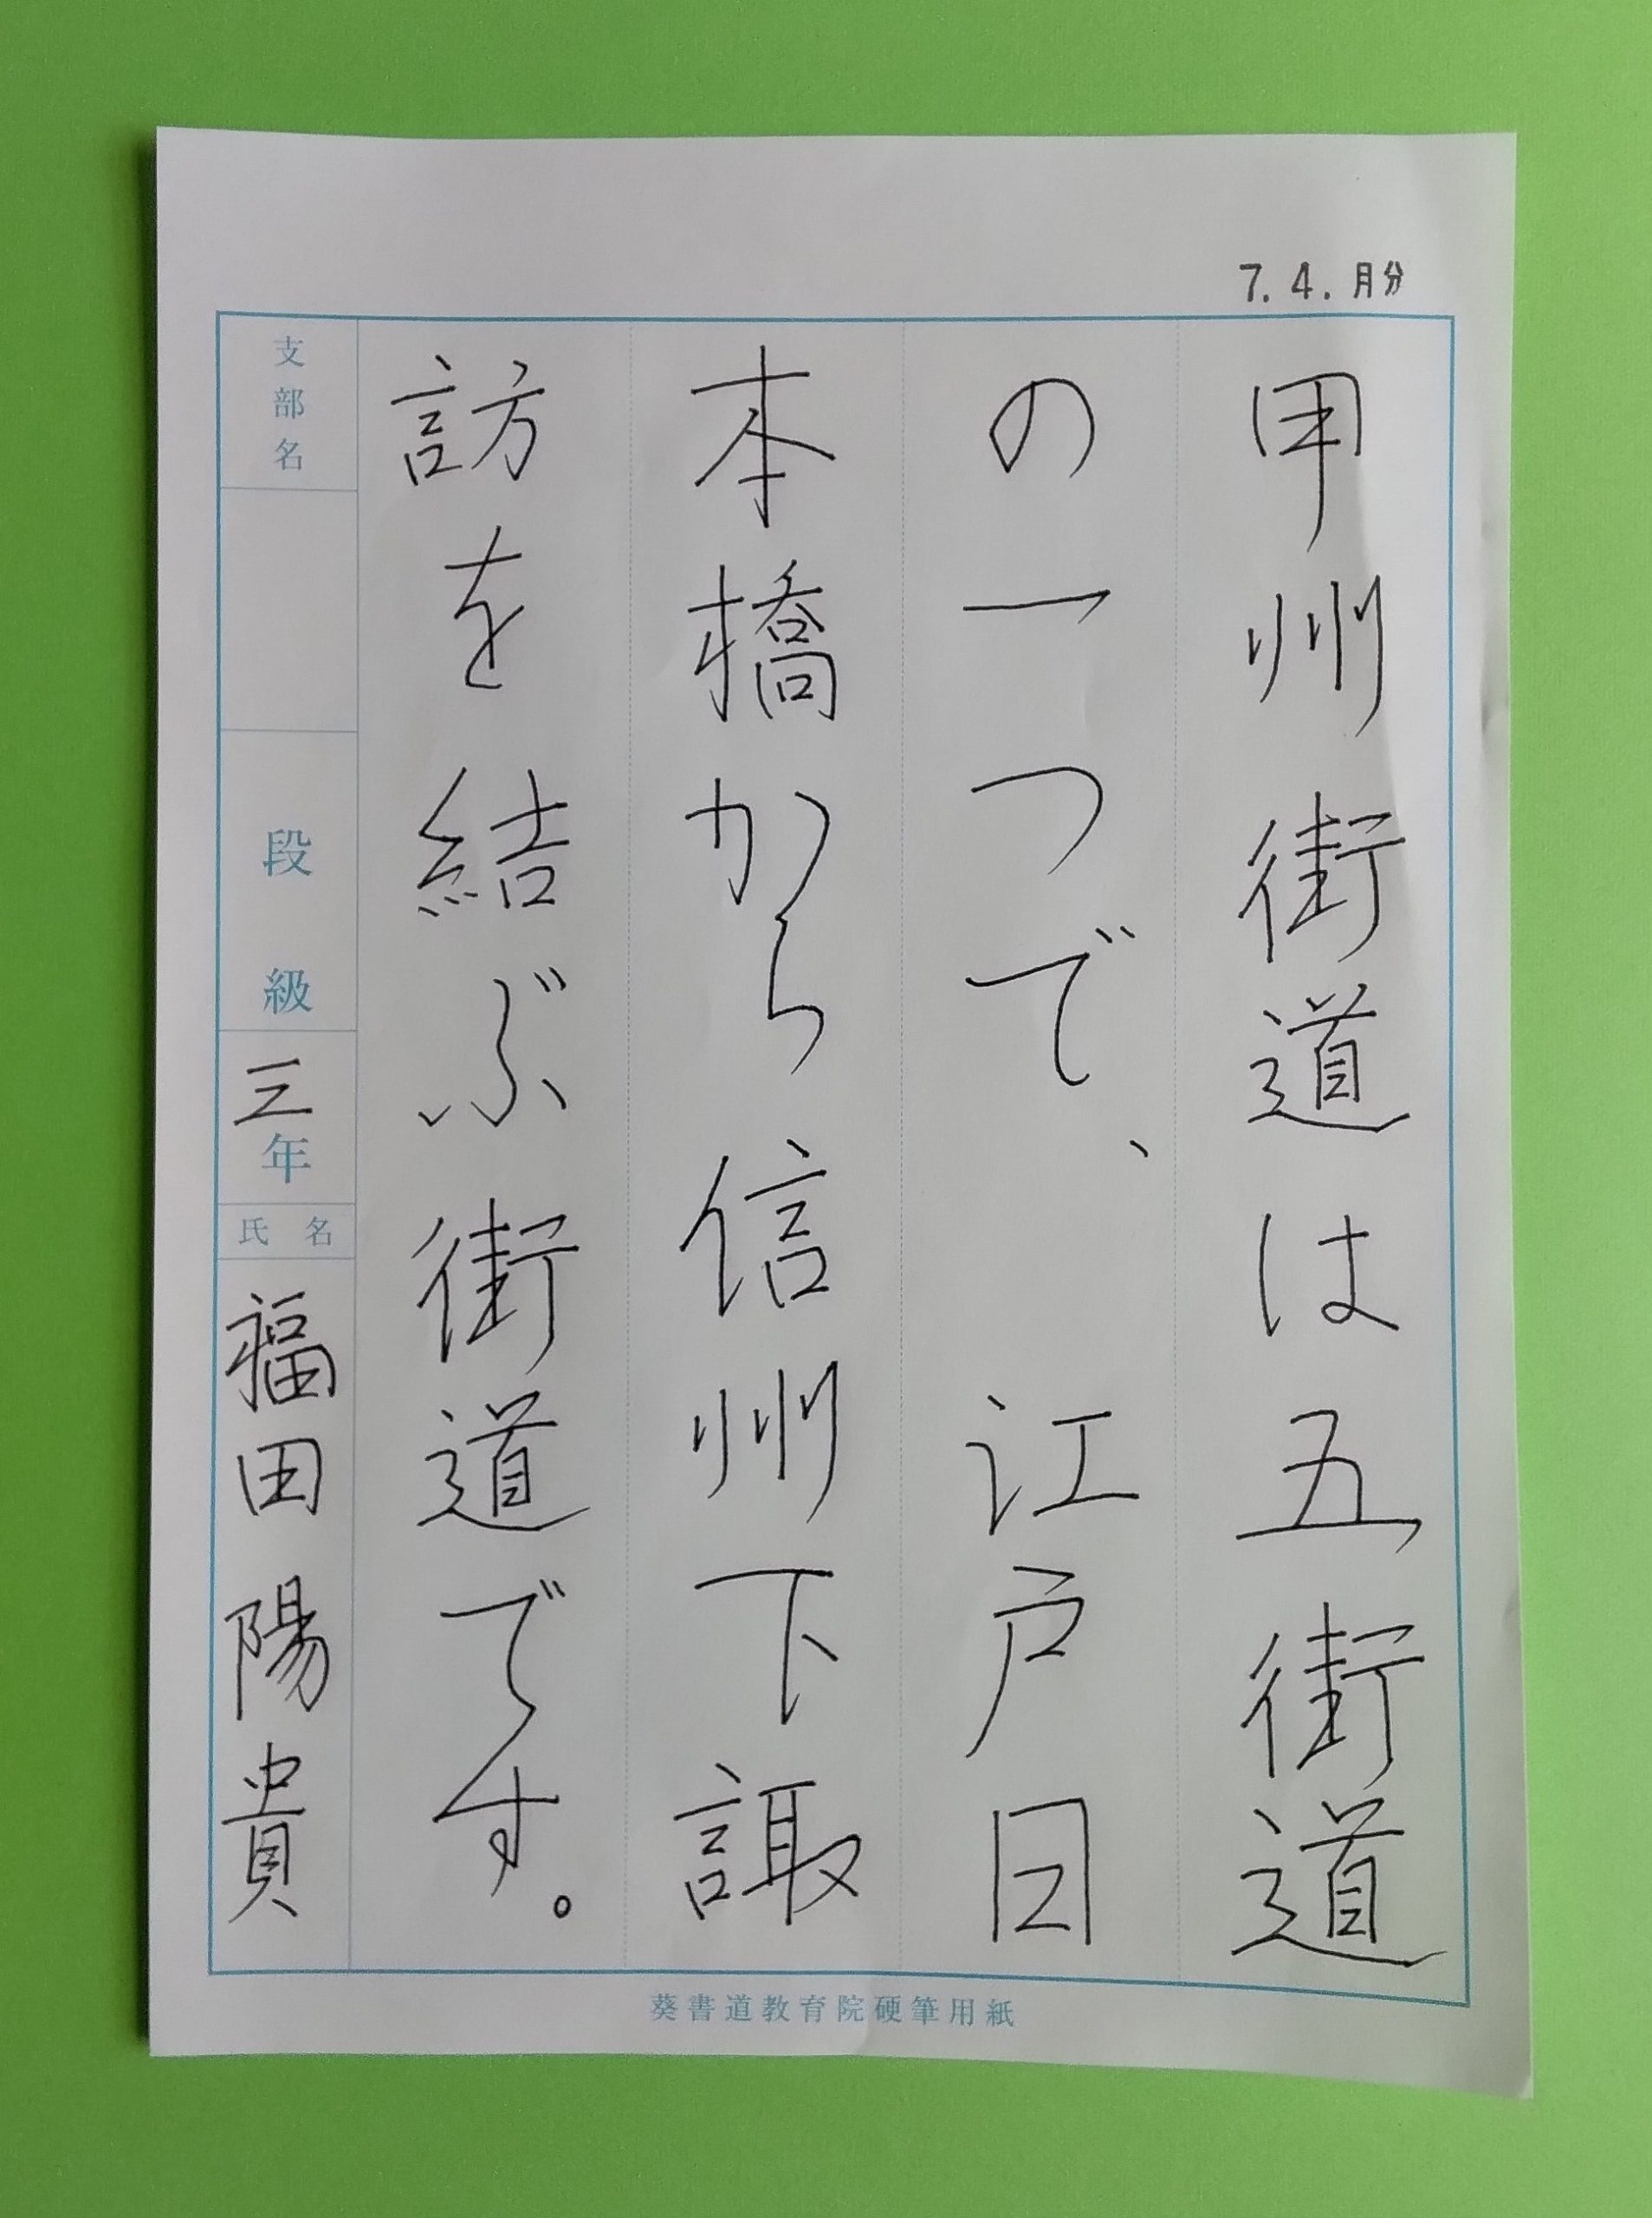 7.4.月分
甲州街道は五街道
の一つで、江戸日
本橋から信州下諏
訪を結ぶ街道です。
支部名
段級
三年
氏名
福田陽貴
葵書道教育院硬筆用紙